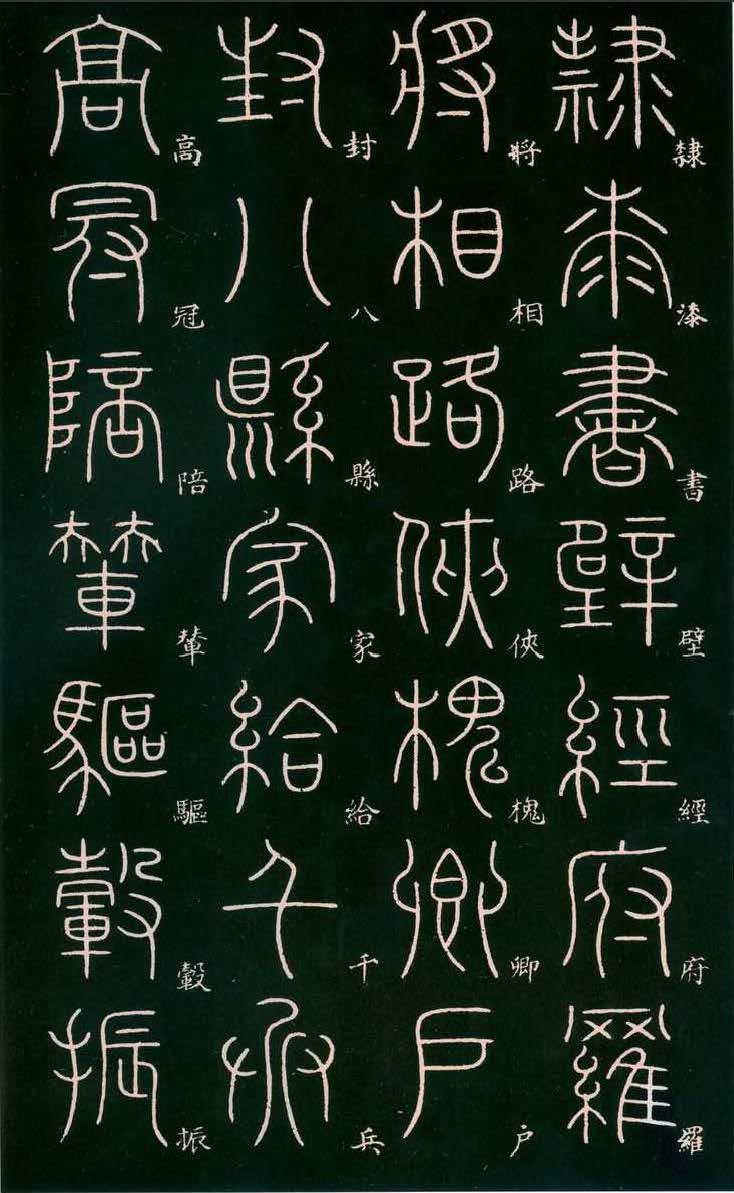 隸隸漆漆書書壁壁經經府府羅羅
將將相相路路俠俠槐槐卿卿户户
封封八八縣縣家家給給千千兵兵
高高冠冠陪陪輦輦驅驅轂轂振振